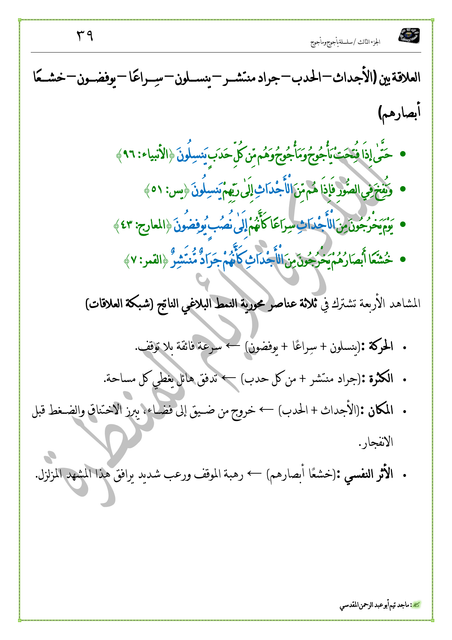 الجزء الثالث / سلسلة يأجوج ومأجوج
٣٩
العلاقة بين (الأجداث – الحدب – جراد منتشر – ينسلون – سِراعًا – يوفضون – خشعًا
أبصارهم)
• حَتَّىٰ إِذَا فُتِحَتْ يَأْجُوجُ وَمَأْجُوجُ وَهُم مِّن كُلِّ حَدَبٍ يَنسِلُونَ ﴿الأنبياء: ٩٦﴾
• وَنُفِخَ فِي الصُّورِ فَإِذَا هُم مِّنَ الْأَجْدَاثِ إِلَىٰ رَبِّهِمْ يَنسِلُونَ ﴿يس: ٥١﴾
• يَوْمَ يَخْرُجُونَ مِنَ الْأَجْدَاثِ سِرَاعًا كَأَنَّهُمْ إِلَىٰ نُصُبٍ يُوفِضُونَ ﴿المعارج: ٤٣﴾
• خُشَّعًا أَبْصَارُهُمْ يَخْرُجُونَ مِنَ الْأَجْدَاثِ كَأَنَّهُمْ جَرَادٌ مُّنتَشِرٌ ﴿القمر: ٧﴾
المشاهد الأربعة تشترك في ثلاثة عناصر محورية النمط البلاغي الناتج (شبكة العلاقات)
• الحركة :(ينسلون + سِراعًا + يوفضون) ← سرعة فائقة بلا توقف.
• الكثرة :(جراد منتشر + من كل حدب) ← تدفق هائل يغطي كل مساحة.
• المكان :(الأجداث + الحدب) ← خروج من ضيق إلى فضاء، يبرز الاختناق والضغط قبل
الانفجار.
• الأثر النفسي :(خشعًا أبصارهم) ← رهبة الموقف ورعب شديد يرافق هذا المشهد المزلزل.
التذكرة للأيام المنتظرة
: ماجد تيم أبو عبد الرحمن المقدسي